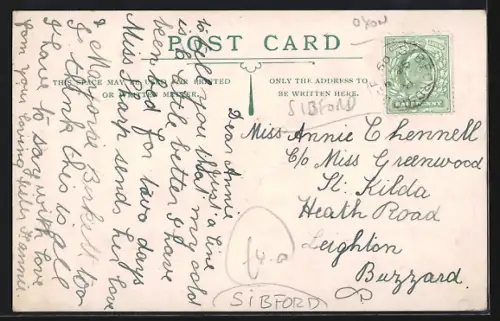 OXON
POST CARD
THIS SPACE MAY BE USED FOR PRINTED
OR WRITTEN MATTER.
ONLY THE ADDRESS TO
BE WRITTEN HERE.
HALFPENNY
SIBFORD
Dear Annie
Just a line
to tell you that my cold
is a little better I have
been in bed for two days
Miss Sharp sends her love
& Marjorie Beckett too
I think this is all
I have to say with love
from your loving sister Fannie.
Miss Annie Chennell
C/o Miss Greenwood
St. Kilda
Heath Road
Leighton
Buzzard.
SIBFORD